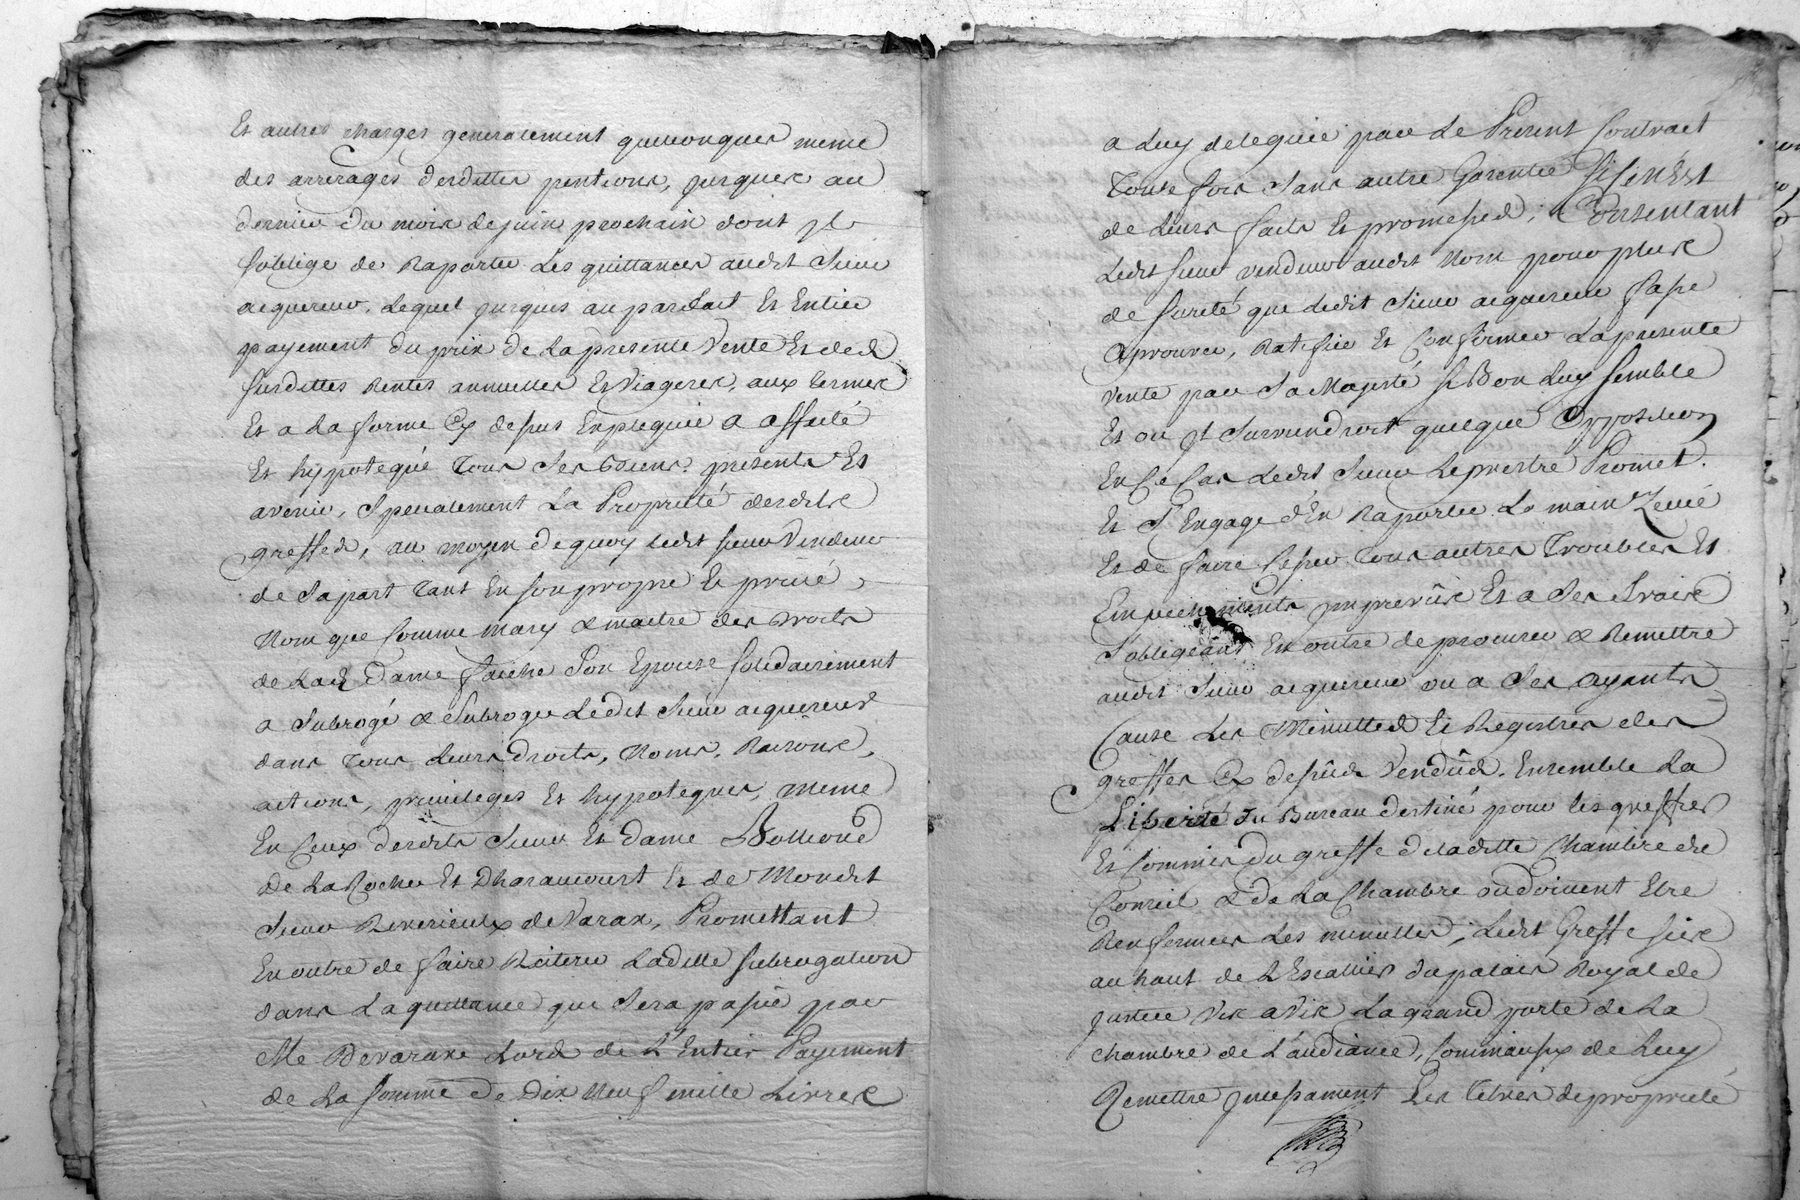 Et autres charges generalement quelconques meme
des arrerages desdittes pentions, jusques au
dernier du mois de juin prochain dont il
soblige de Raporter les quittances audit Sieur
acquereur, Lequel jusques au parfait Et Entier
payement du prix de la presente Vente Et des
susdittes Rentes annuelles Et Viageres, aux termes
Et a la forme Cy dessus Expliquée a affecté
Et hypotequé tous ses Biens presents Et
avenir, Specialement La Proprieté desdits
greffes, au moyen de quoy ledit sieur Vendeur
de sa part tant En son propre Et privé
Nom que Comme mary & maitre des droits
de lad dame son Epouse solidairement
a Subrogé & Subroge Ledit Sieur acquereur
dans tous leurs droits, Noms, Raisons,
actions, privileges Et hypoteques, meme
En Ceux desdits Sieur Et dame
De La Roche Et Dharaucourt Et de Mondit
Sieur Reverieulx de Varax, Promettant
En outre de faire Reiterer Laditte subrogation
dans La quittance que Sera passée par
Me Devaraxe Lors de L'Entier Payement
de La somme de Dix Neuf mille Livres
a Luy deleguée par Le Present Contract
toute fois sans autre Garentie si se n'Est
de Leurs faits Et promesses, Consentant
Ledit sieur vendeur audit Nom pour plus
de sureté que ledit Sieur acquereur fasse
aprouver, Ratifier Et Confirmer La presente
vente par Sa Majesté si Bon Luy semble
Et ou Il Surviendroit quelque Opposition
En Ce Cas Ledit Sieur Leprestre Promet
Et S'Engage d'En Raporter La main Levée
Et de faire Cesser tous autres Troubles Et
Empechements imprevûs Et a Ses fraix
S'obligeant En outre de procurer & Remettre
audit Sieur acquereur ou a Ses ayants
Cause Les Minuttes Et Registres des
greffes Cy dessus Vendûs, Ensemble La
Liberté du Bureau destiné pour les greffiers
Et Commis du greffe de laditte Chambre du
Conseil & de La Chambre ou doivent Etre
Renfermées Les minuttes, Ledit Greffe sis
au haut de L'Escallier du palais Royal de
justice Vis a Vis La grand porte de La
chambre de L'audiance, Comme aussy de Luy
Remettre incessament Les titres de proprieté